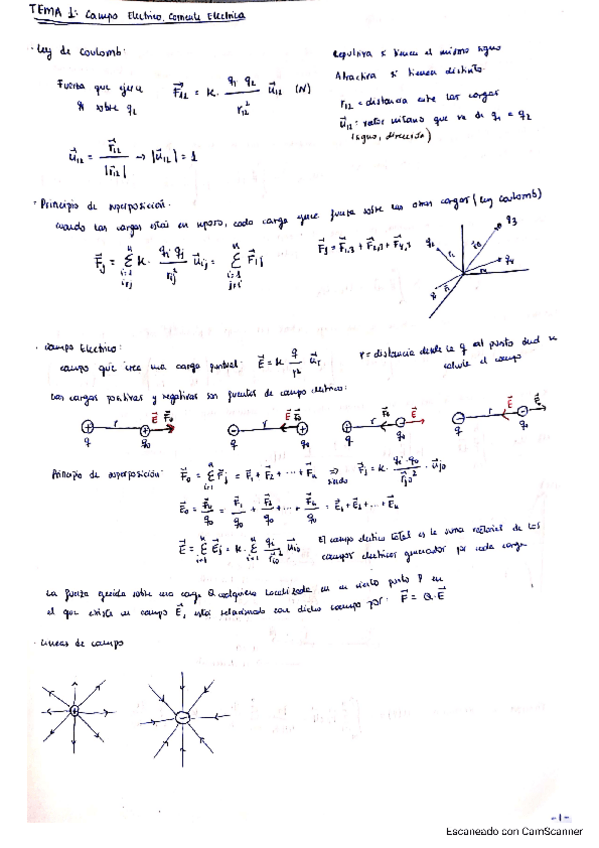 TEMA 1: Campo Eléctrico, Corriente Eléctrica
· Ley de Coulomb:
Fuerza que ejerce q₁ sobre q₂
F⃗₁₂ = k · q₁ q₂ / r₁₂² u⃗₁₂ (N)
Repulsiva si tienen el mismo signo
Atractiva si tienen distinto.
r₁₂ = distancia entre las cargas
u⃗₁₂ = vector unitario que va de q₁ a q₂
(signo, dirección)
u⃗₁₂ = r⃗₁₂ / |r⃗₁₂| → |u⃗₁₂| = 1
· Principio de superposición:
cuando las cargas están en reposo, cada carga ejerce fuerza sobre las otras cargas (ley coulomb)
F⃗₃ = F⃗₁,₃ + F⃗₂,₃ + F⃗₄,₃
q₃
· Campo Eléctrico:
campo que crea una carga puntual: E⃗ = k q / r² u⃗r
r = distancia desde la q al punto donde se
calcule el campo
Las cargas positivas y negativas son fuentes de campo eléctrico:
+ r + E⃗ F⃗₀
q q₀
- r + E⃗ F⃗₀
q q₀
+ F⃗₀ - E⃗
q q₀
- r - E⃗
q q₀
Principio de superposición: F⃗₀ = Σ F⃗j = F⃗₁ + F⃗₂ + ... + F⃗n ⇒ siendo
E⃗₀ = F⃗₀/q₀ = F⃗₁/q₀ + F⃗₂/q₀ + ... + F⃗n/q₀ = E⃗₁ + E⃗₂ + ... + E⃗n
El campo eléctrico total es la suma vectorial de los
campos eléctricos generados por cada carga
La fuerza ejercida sobre una carga Q cualquiera localizada en un cierto punto P en
el que existe un campo E⃗, está relacionada con dicho campo por: F⃗ = Q·E⃗
· Líneas de campo
+
-
-1-
Escaneado con CamScanner